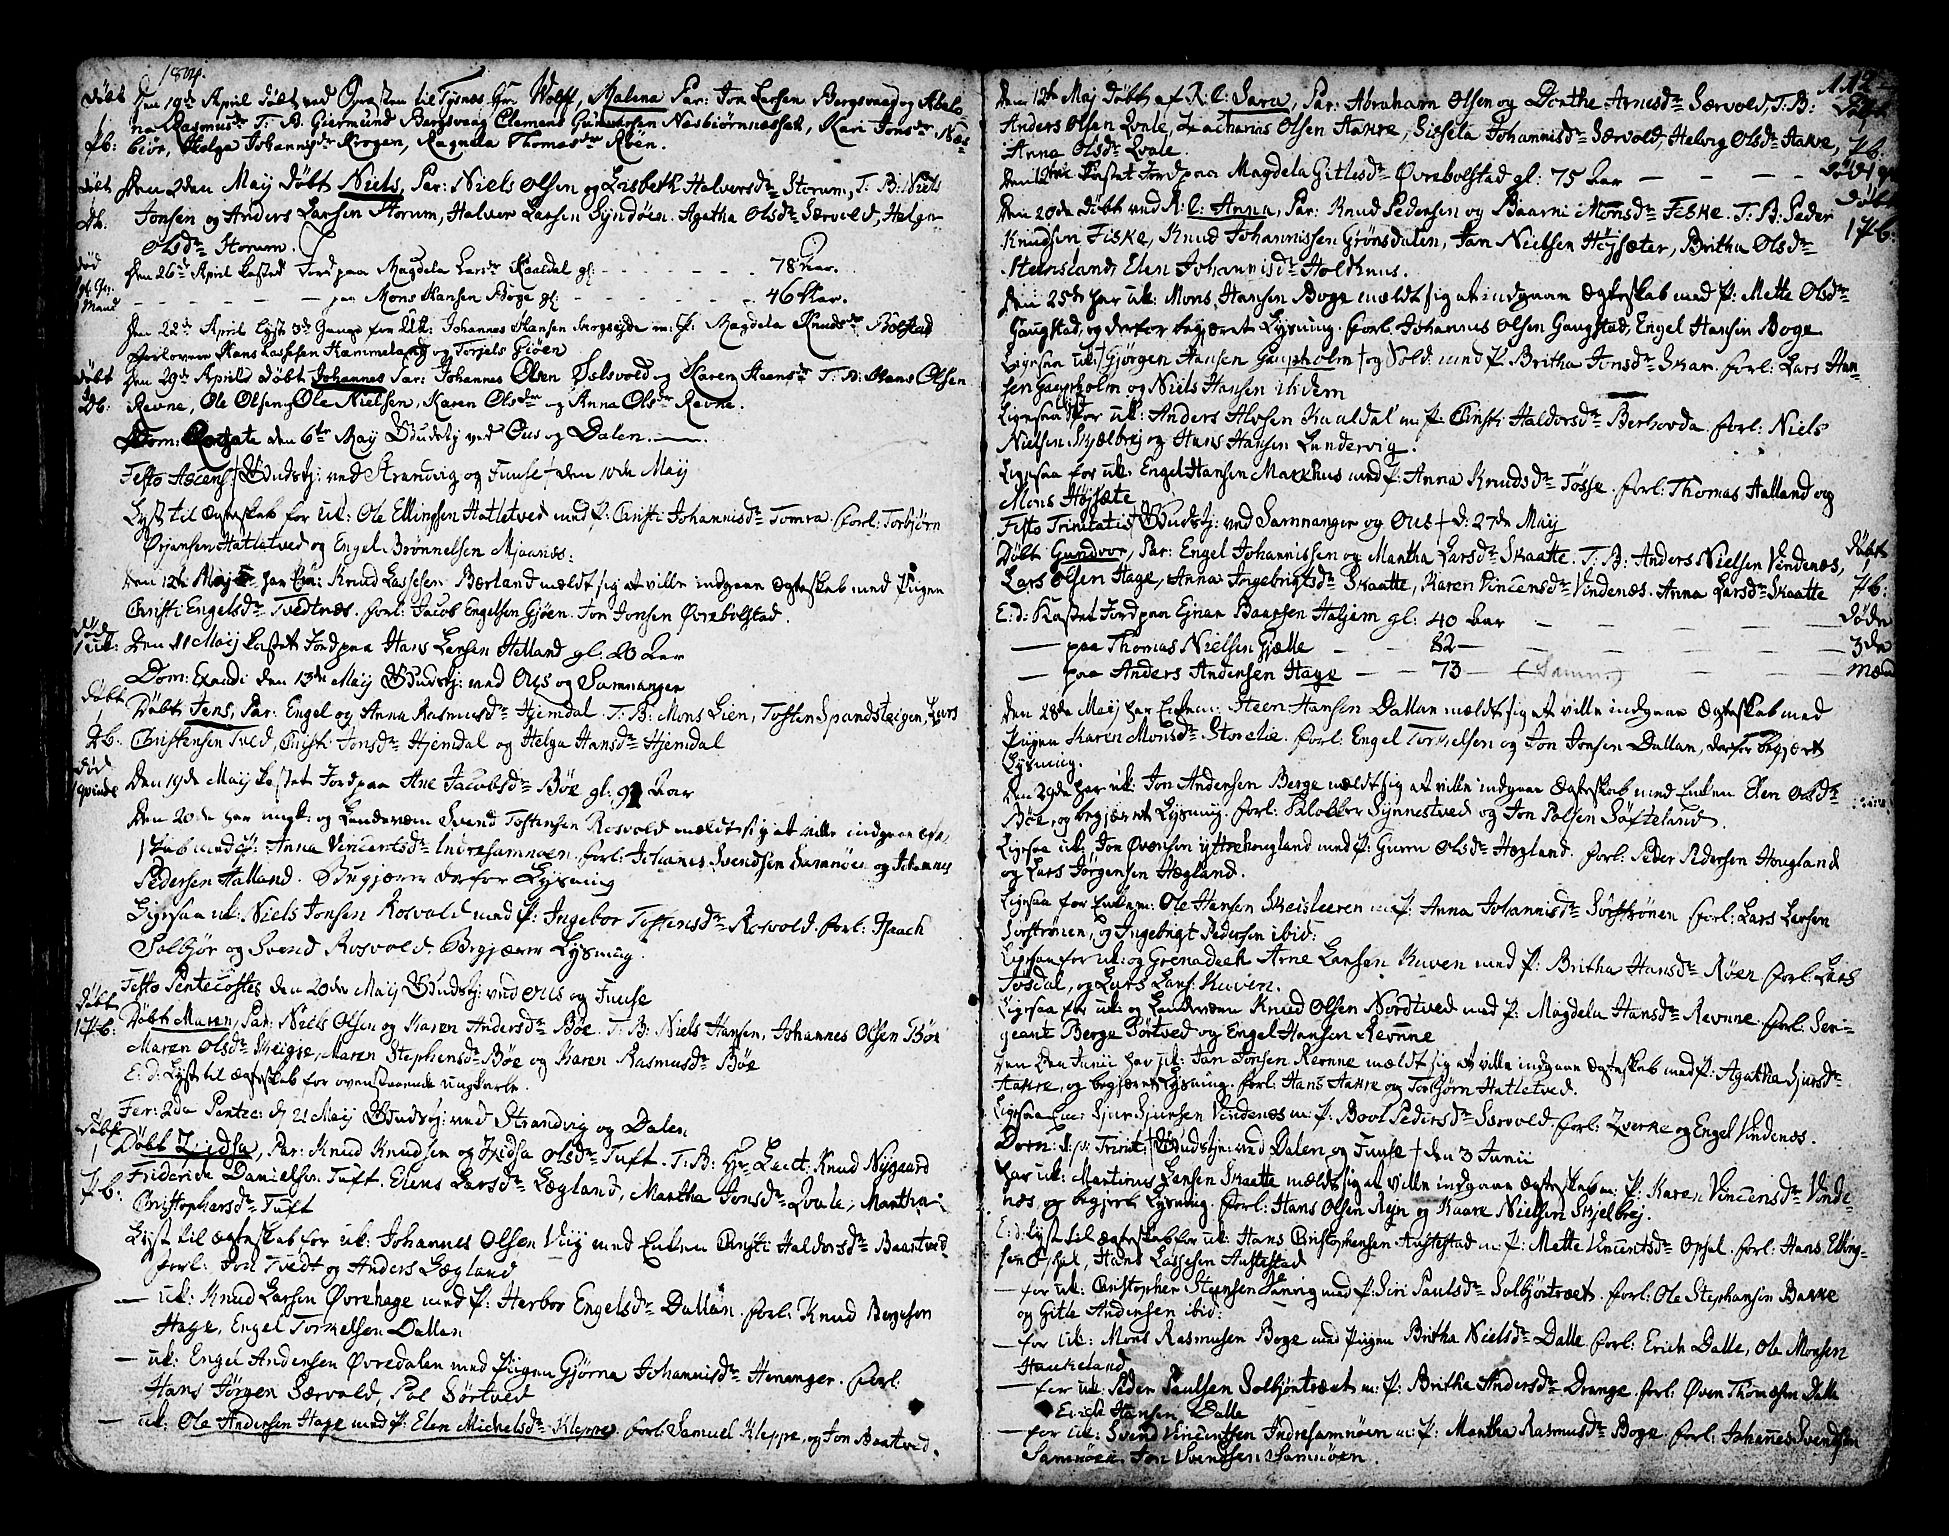 1804.
døbt Den 19de April døbt ved Provsten til Tysnes Hr Wolff, Malena Par: Jon Larsen Bergsvaag og Abelo-
1 na Rasmusdr T. B. Giermund Bergsvaag Clemens Nasbiørnnesset, Kari Jonsdr Nas-
Pb: biør, Helga Johannisdr Krogen, Ragnela Thomasdr Røen.
døbt Den 2den Maÿ døbt Niels, Par: Niels Olsen og Lisbeth Halversdr Storum, T: B: Niels
Db: Jonsen og Anders Larsen Storum, Halver Larsen Sÿndøen. Agatha Olsdr Særvold, Helge
Olsdr Storum.
død Den 26de April kasted Jord paa Magdela Larsdr Kaaldal gl: - - - 78 Aar.
1 Mand - - - paa Mons Hansen Bøge gl: - - - 46 Aar.
Den 22de April lyst 3de Gange for Uk: Johannes Hansen Bergseyde m: P: Magdela Knudsdr Bolstad
forlovere Hans Lassesen Hammeland og Torjels Giøen
døbt Den 29de Aprilis døbt Johannes Par: Johannes Olsen Øslsvold og Karen Steensdr T: B: Hans Olsen
Db: Revne, Ole Olsen, Ole Nielsen, Karen Olsdr og Anna Olsdr Revne.
Dom: Rogate den 6te Maÿ Gudstj: ved Ous og Dalen.
Festo Ascens: Gudstj: ved Strandvig og Fuuse den 10de Maÿ
Lyst til Ægteskab for uk: Ole Ellingsen Hatletved med P: Christi Johannisdr Tomra forl: Torbjørn
Ørjansen Hatletved og Engel Brønnelsen Mjaanes:
Den 12te Maÿ har Uk: Knud Lassesen Børland mældt sig at ville indgaae Ægteskab med Pigen
Christi Engelsdr Tvedtnæs. forl: Jacob Engelsen Gjøen. Jon Jonsen Øvrebolstad.
død
1 uk: Den 11 Maÿ kastet Jord paa Hans Larsen Helland gl: 20 Aar
Dom: Exaudi den 13de Maÿ Gudstj: ved Ous og Samnanger
døbt Døbt Jens, Par: Engel og Anna Rasmusdr Hjemdal. T: B: Mons Lien, Tosten Spandsteigen, Lars
Db. Christensen Tved, Christi Jonsdr Hjemdal og Helga Hansdr Hjemdal
død
1 qvinde Den 19de Maÿ kastet Jord paa Ane Jacobsdr Bøe gl: 91 Aar
Den 20de har ungk: og Landværn Svend Tostensen Rosvold mældt sig at ville indgaae Ægte-
skab med P: Anna Vincentsdr Indresamnøen, forl: Johannes Svendsen Samnøen og Johannes
Pedersen Halland. Begjærer derfor Lysning
Ligesaa uk: Niels Jonsen Rosvold med P: Ingebor Tostensdr Rosvold. forl: Isaach
Solbjør og Svend Rosvold. Begjærer Lysning.
Festo Pentecostes den 20de Maÿ Gudstj: ved Ous og Fuuse
døbt
1 Pb: Døbt Maren, Par: Niels Olsen og Karen Andersdr Bøe. T: B: Niels Hansen, Johannes Olsen Bøe
Maren Olsdr Skeigje, Maren Stephensdr Bøe og Karen Rasmusdr Bøe
E: d: Lyst til ægteskab for ovenstaaende ungkarle.
Fer: 2da Pentec: d: 21 Maÿ Gudstj: ved Strandvig og Dalen
døbt
1 Døbt Zidsa, Par: Knud Knudsen og Zidsa Olsdr Tuft. T: B: Hr Lieut: Knud Nygaard
Pb: Friderich Danielsen Tuft. Elens Larsdr Lægland, Martha Jonsdr Qvale, Martha
Christophersdr Tuft
Lyst til ægteskab for uk: Johannes Olsen Viig med Enken Christi Haldorsdr Baastved
forl: Jon Tvedt og Anders Lægland
— uk: Knud Larsen Øvrehage med P: Herbor Engelsdr Dallan. forl: Knud Bergeson
Hage, Engel Torkelsen Dallan
— uk: Engel Andersen Øvredalen med Pigen Gjørna Johannisdr Henanger. forl:
Hans Jørgen Særvold, Pol Sørtved
— uk: Ole Andersen Hage med P: Elen Michelsdr Kleppe. forl: Samuel Kleppe, og Jon Baatved.
112
Den 12te Maj døbt af R. C: Sara, Par: Abraham Olsen og Dorthe Arnesdr Særvold, T. B:
Anders Olsen Qvale, Zacharias Olsen Hakre, Sissela Johannisdr Særvold, Helvig Olsdr Hakre, Pb:
Anna Olsdr Qvale.
Den 12te kastet Jord paa Magdela Gitlesdr Øvrebolstad gl: 75 Aar — — — død 1
Den 20de døbt ved R. C: Anna, Par: Knud Pedersen og Baarni Monsdr Fiske. T. B: Peder døbt
Knudsen Fiske, Knud Johannissen Grønsdalen, Jan Nielsen Højsæter, Britha Olsdr 1 Pb:
Steensland, Elen Johannisdr Holdhuus.
Den 25de har uk: Mons Hansen Boge mældt sig at indgaae Ægteskab med P: Mette Olsdr
Gaugstad, og derfor begjæret Lysning. forl: Johannes Olsen Gaugstad, Engel Hansen Boge
Ligesaa uk: Gjørgen Hansen Gaupholm og Sold: med P: Britha Jonsdr Skar. forl: Lars Han-
sen Gaupholm og Niels Hansen ibidem
Ligesaa for uk: Anders Alvsen Kaaldal m: P: Christi Haldorsdr Berhovda. forl: Niels
Nielsen Skælbrej og Hans Hansen Lundervig.
Ligesaa for uk: Engel Hansen Markhus med P: Anna Knudsdr Tøsse. forl: Thomas Halland og
Mons Højsæte
Festo Trinitatis Gudstj: ved Samnanger og Ous d: 27de Maÿ
Døbt Gundvor, Par: Engel Johannissen og Martha Larsdr Skaatte. T. B: Anders Nielsen Vindenæs, døbt 1
Lars Olsen Hage, Anna Ingebrigtsdr Skaatte, Karen Vincensdr Vindenæs. Anna Larsdr Skaatte Pb:
E: d: Kastet Jord paa Ejnar Baarsen Haljem gl: 40 Aar — — — døde
— paa Thomas Nielsen Gjelle — — 82 — — — 3de
— paa Anders Andersen Hage — — 73 — — — Mænd
Den 28de Maÿ har Enkem: Steen Hansen Dallan mældt sig at ville indgaae Ægteskab med
Pigen Karen Monsdr Storelie. forl: Engel Torkelsen og Jon Jonsen Dallan, derfor begjært
Lysning.
Den 29de har uk: Jon Andersen Berge mældt sig at ville indgaae Ægteskab med Enken Elen Olsdr
Bøe, og begjæret Lysning. forl: Skokker Sÿnnestved og Jon Polsen Søfteland.
Ligesaa uk: Jon Ovenson Yttrehougland med P: Guron Olsdr Hægland. forl: Peder Pedersen Hougland
og Lars Jørgensen Hægland.
Ligesaa for Enkem: Ole Hansen Skeisleeren m: P: Anna Johannisdr Sørstrønen forl: Lars Larsen
Sørstrønen, og Ingebrigt Pedersen ibid:
Ligesaa for uk: og Grenadeer Arne Larsen Kuven med P: Britha Hansdr Røen forl: Lars
Tøsdal, og Lars Lars: Kuven.
Ligesaa for uk: og Landværn Knud Olsen Nordtved med P: Magdela Hansdr Revne. forl: Seri-
geant Berge Sørtved og Engel Hansen Revnne
Den 2den Junii har uk: Jan Jonsen Revnne mældt sig at ville indgaae Ægteskab med P: Agatha Sjursdr
Hakre, og begjæret Lysning. forl: Hans Hakre og Torbjørn Hatletved.
Ligesaa Enk: Sjur Sjursen Vindenæs m: P: Boel Pedersdr Særvold. forl: Zverke og Engel Vindenæs.
Dom: 1 p: Trinit: Gudstjen: ved Dalen og Fuuse den 3 Junii
har uk: Martinus Jensen Skaatte mældt sig at ville indgaae Ægteskab m: P: Karen Vincensdr Vinde-
næs, og begjert Lysning. forl: Hans Olsen Røyn og Kaare Nielsen Skjelbrej.
E: d: lyst til Ægteskab for uk: Hans Christophersen Austestad m: P: Mette Vincentsdr Opsal. forl: Hans Elling-
sen Opsal, Hans Lassesen Austestad
— for uk: Christopher Steensen Tanvig med P: Siri Paulsdr Solbjøntræet. forl: Ole Stephansen Bakke
og Gitle Andersen ibid:
— for uk: Mons Rasmusen Boge med Pigen Britha Nielsdr Dalle forl: Erich Dalle, Ole Monsen
Haukeland
— for uk: Peder Paulsen Solbjøntræet m: P: Britha Andersdr Drange. forl: Øven Thomæsen Dalle
Erich Hansen Dalle
— for uk: Svend Vincentsen Indresamnøen m: P: Martha Rasmusdr Boge forl: Johannes Svendsen
Samnøen. Jon Svendsen Samnøen.